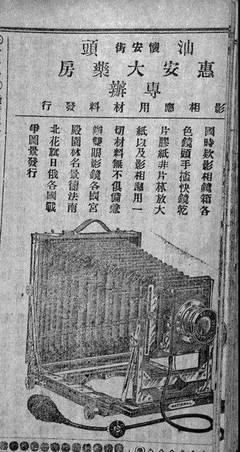 汕頭
懷安街
惠安大藥房
專辦
影相應用材料發行
國時欵影相鏡箱各
色鏡頭手搖快鏡乾
片膠紙非片菻放大
紙以及影相應用一
切材料無不俱備兼
辦雙眼影鏡各國宮
殿園林名景德法南
北花旗日俄各國戰
甲圖景發行